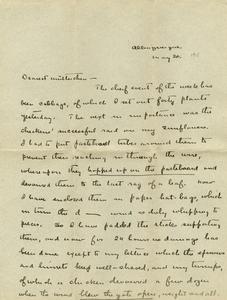 Albuquerque,
May 20.
Dearest mütterchen —
The chief event of the week has
been cabbage, of which I set out forty plants
yesterday. The next in importance was the
chickens' successful raid on my sunflowers.
I had to put pasteboard tubes around them to
prevent their reaching in through the wire,
whereupon they hopped up on the pasteboard and
devoured them to the last rag of a leaf. Now
I have enclosed them in paper hat-bags, which
in turn the d— wind is duly whipping to
pieces. So I have padded the sticks supporting
them, and now for 24 hours no damage has
been done except to my lettuce which the sparrows
and linnets keep well-shaved, and my turnips,
of which a chicken devoured a few dozen
when the wind blew the gate open, weight and all.